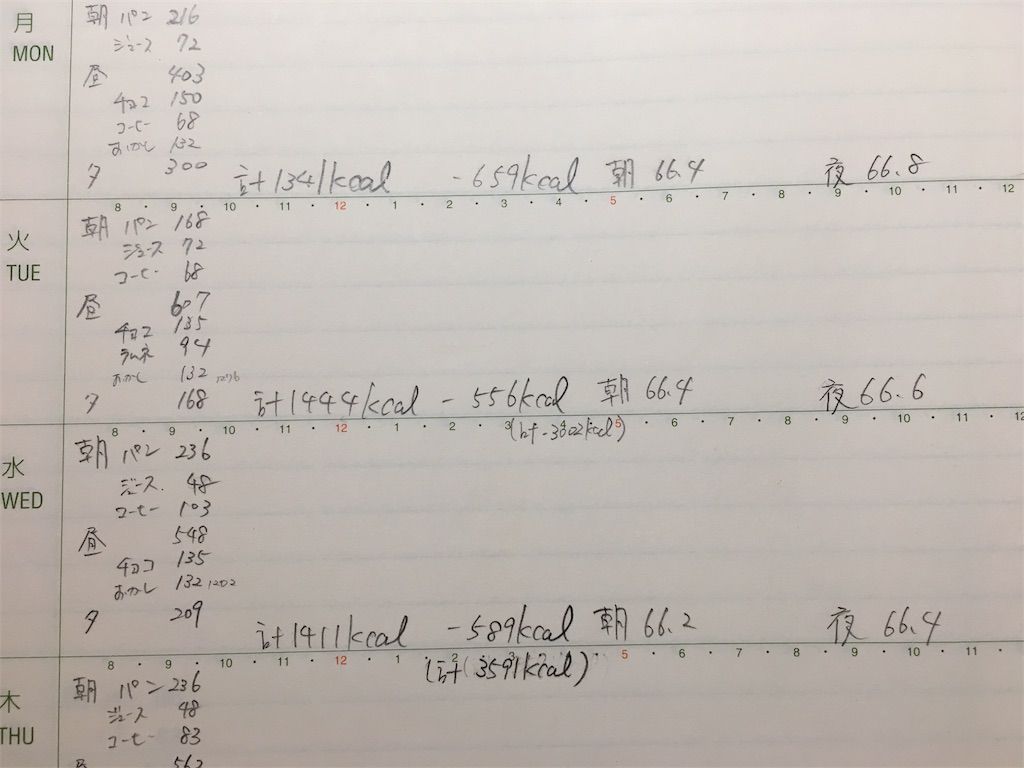 月
MON
朝 パン 216
ジュース 72
昼 403
チョコ 150
コーヒー 68
おかし 132
夕 300 計1341kcal -659kcal 朝 66.4 夜 66.8
8 ・ 9 ・ 10 ・ 11 ・ 12 ・ 1 ・ 2 ・ 3 ・ 4 ・ 5 ・ 6 ・ 7 ・ 8 ・ 9 ・ 10 ・ 11 ・ 12
火
TUE
朝 パン 168
ジュース 72
コーヒー 68
昼 607
チョコ 135
ラムネ 94
おかし 132 1276
夕 168 計1444kcal -556kcal 朝 66.4 夜 66.6
8 ・ 9 ・ 10 ・ 11 ・ 12 ・ 1 ・ 2 ・ 3 ・ 4 ・ 5 ・ 6 ・ 7 ・ 8 ・ 9 ・ 10 ・ 11 ・ 12
(計-3002kcal)
水
WED
朝 パン 236
ジュース 48
コーヒー 103
昼 548
チョコ 135
おかし 132 1202
夕 209 計1411kcal -589kcal 朝 66.2 夜 66.4
8 ・ 9 ・ 10 ・ 11 ・ 12 ・ 1 ・ 2 ・ 3 ・ 4 ・ 5 ・ 6 ・ 7 ・ 8 ・ 9 ・ 10 ・ 11 ・
(計 3591kcal)
木
THU
朝 パン 236
ジュース 48
コーヒー 83
昼 562